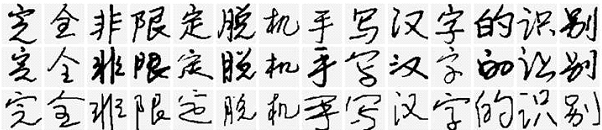 完全非限定脱机手写汉字的识别
完全非限定脱机手写汉字的识别
完全非限定脱机手写汉字的识别